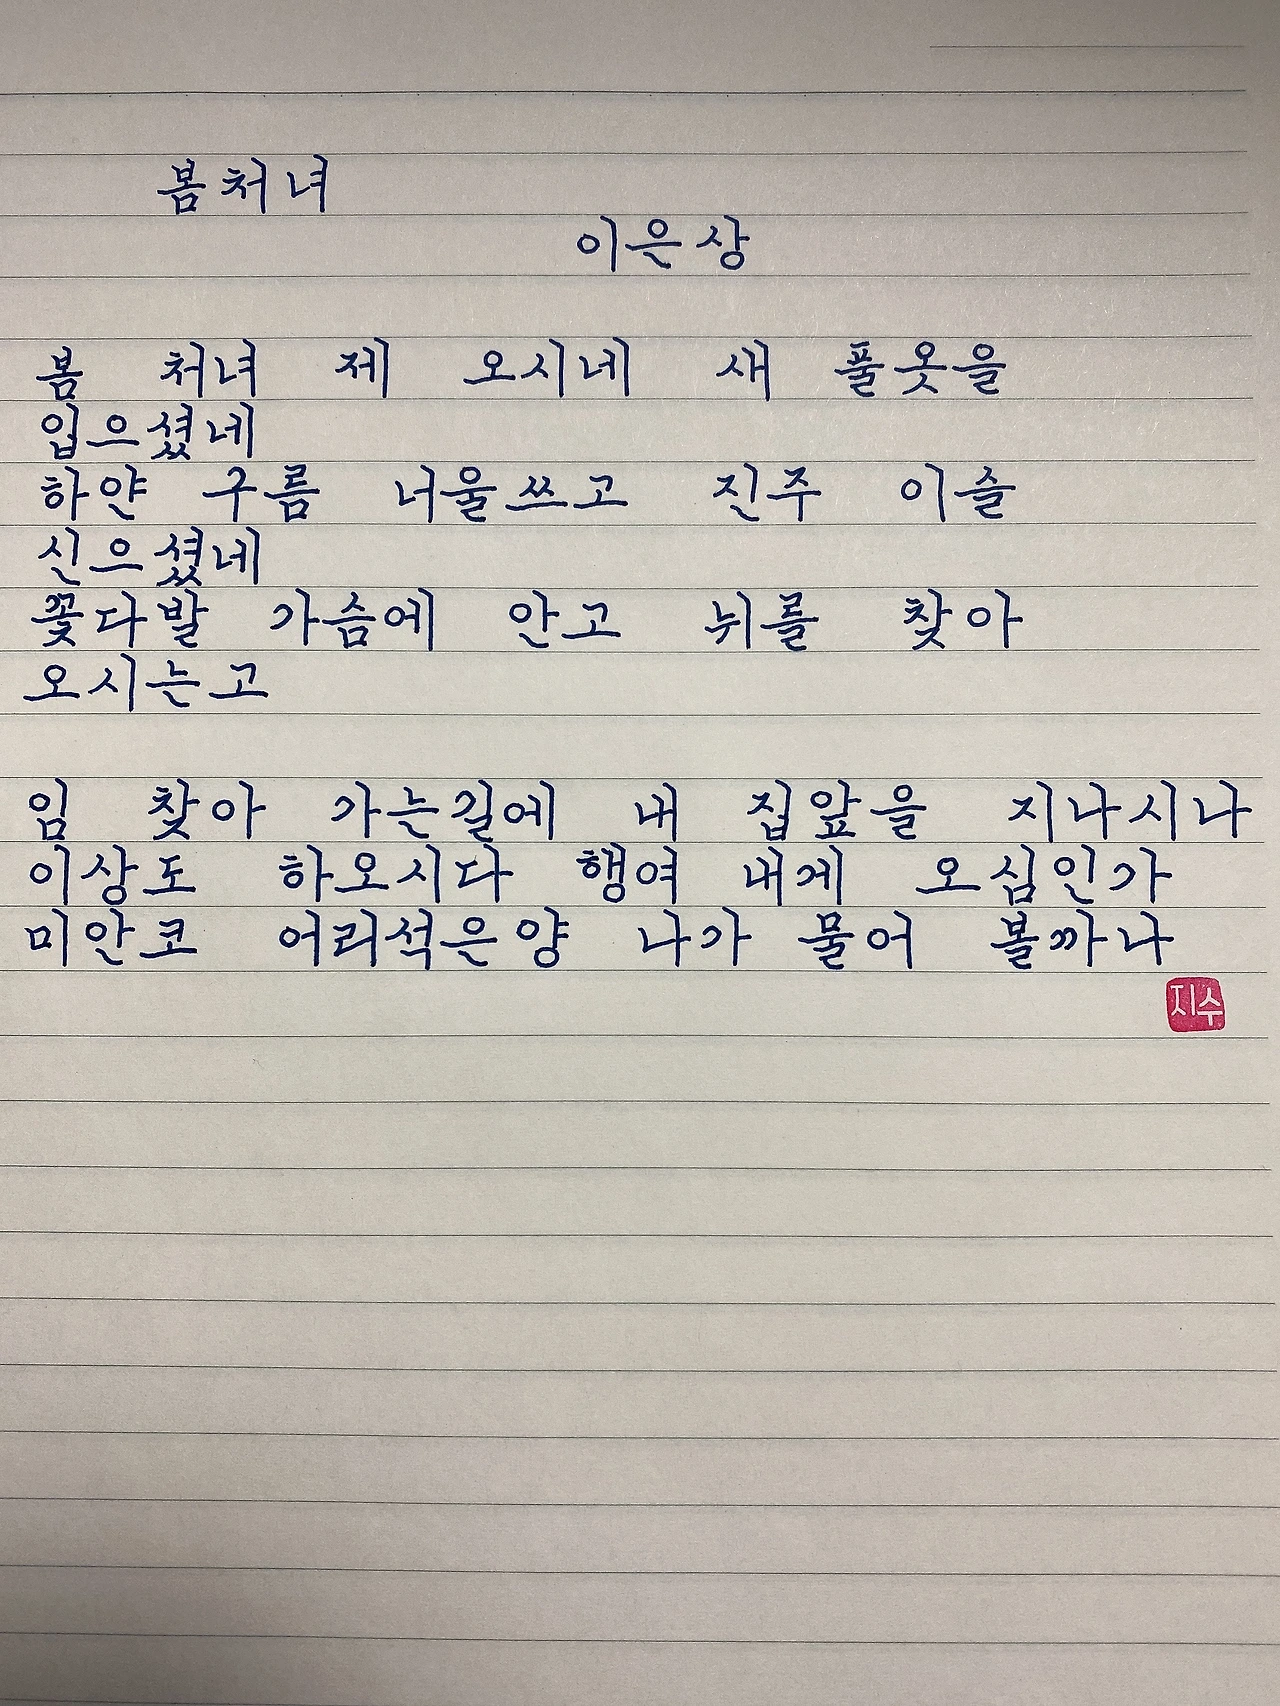 봄처녀
이은상
봄 처녀 제 오시네 새 풀옷을
입으셨네
하얀 구름 너울쓰고 진주 이슬
신으셨네
꽃다발 가슴에 안고 뉘를 찾아
오시는고
임 찾아 가는길에 내 집앞을 지나시나
이상도 하오시다 행여 내게 오심인가
미안코 어리석은양 나가 물어 볼까나
지수